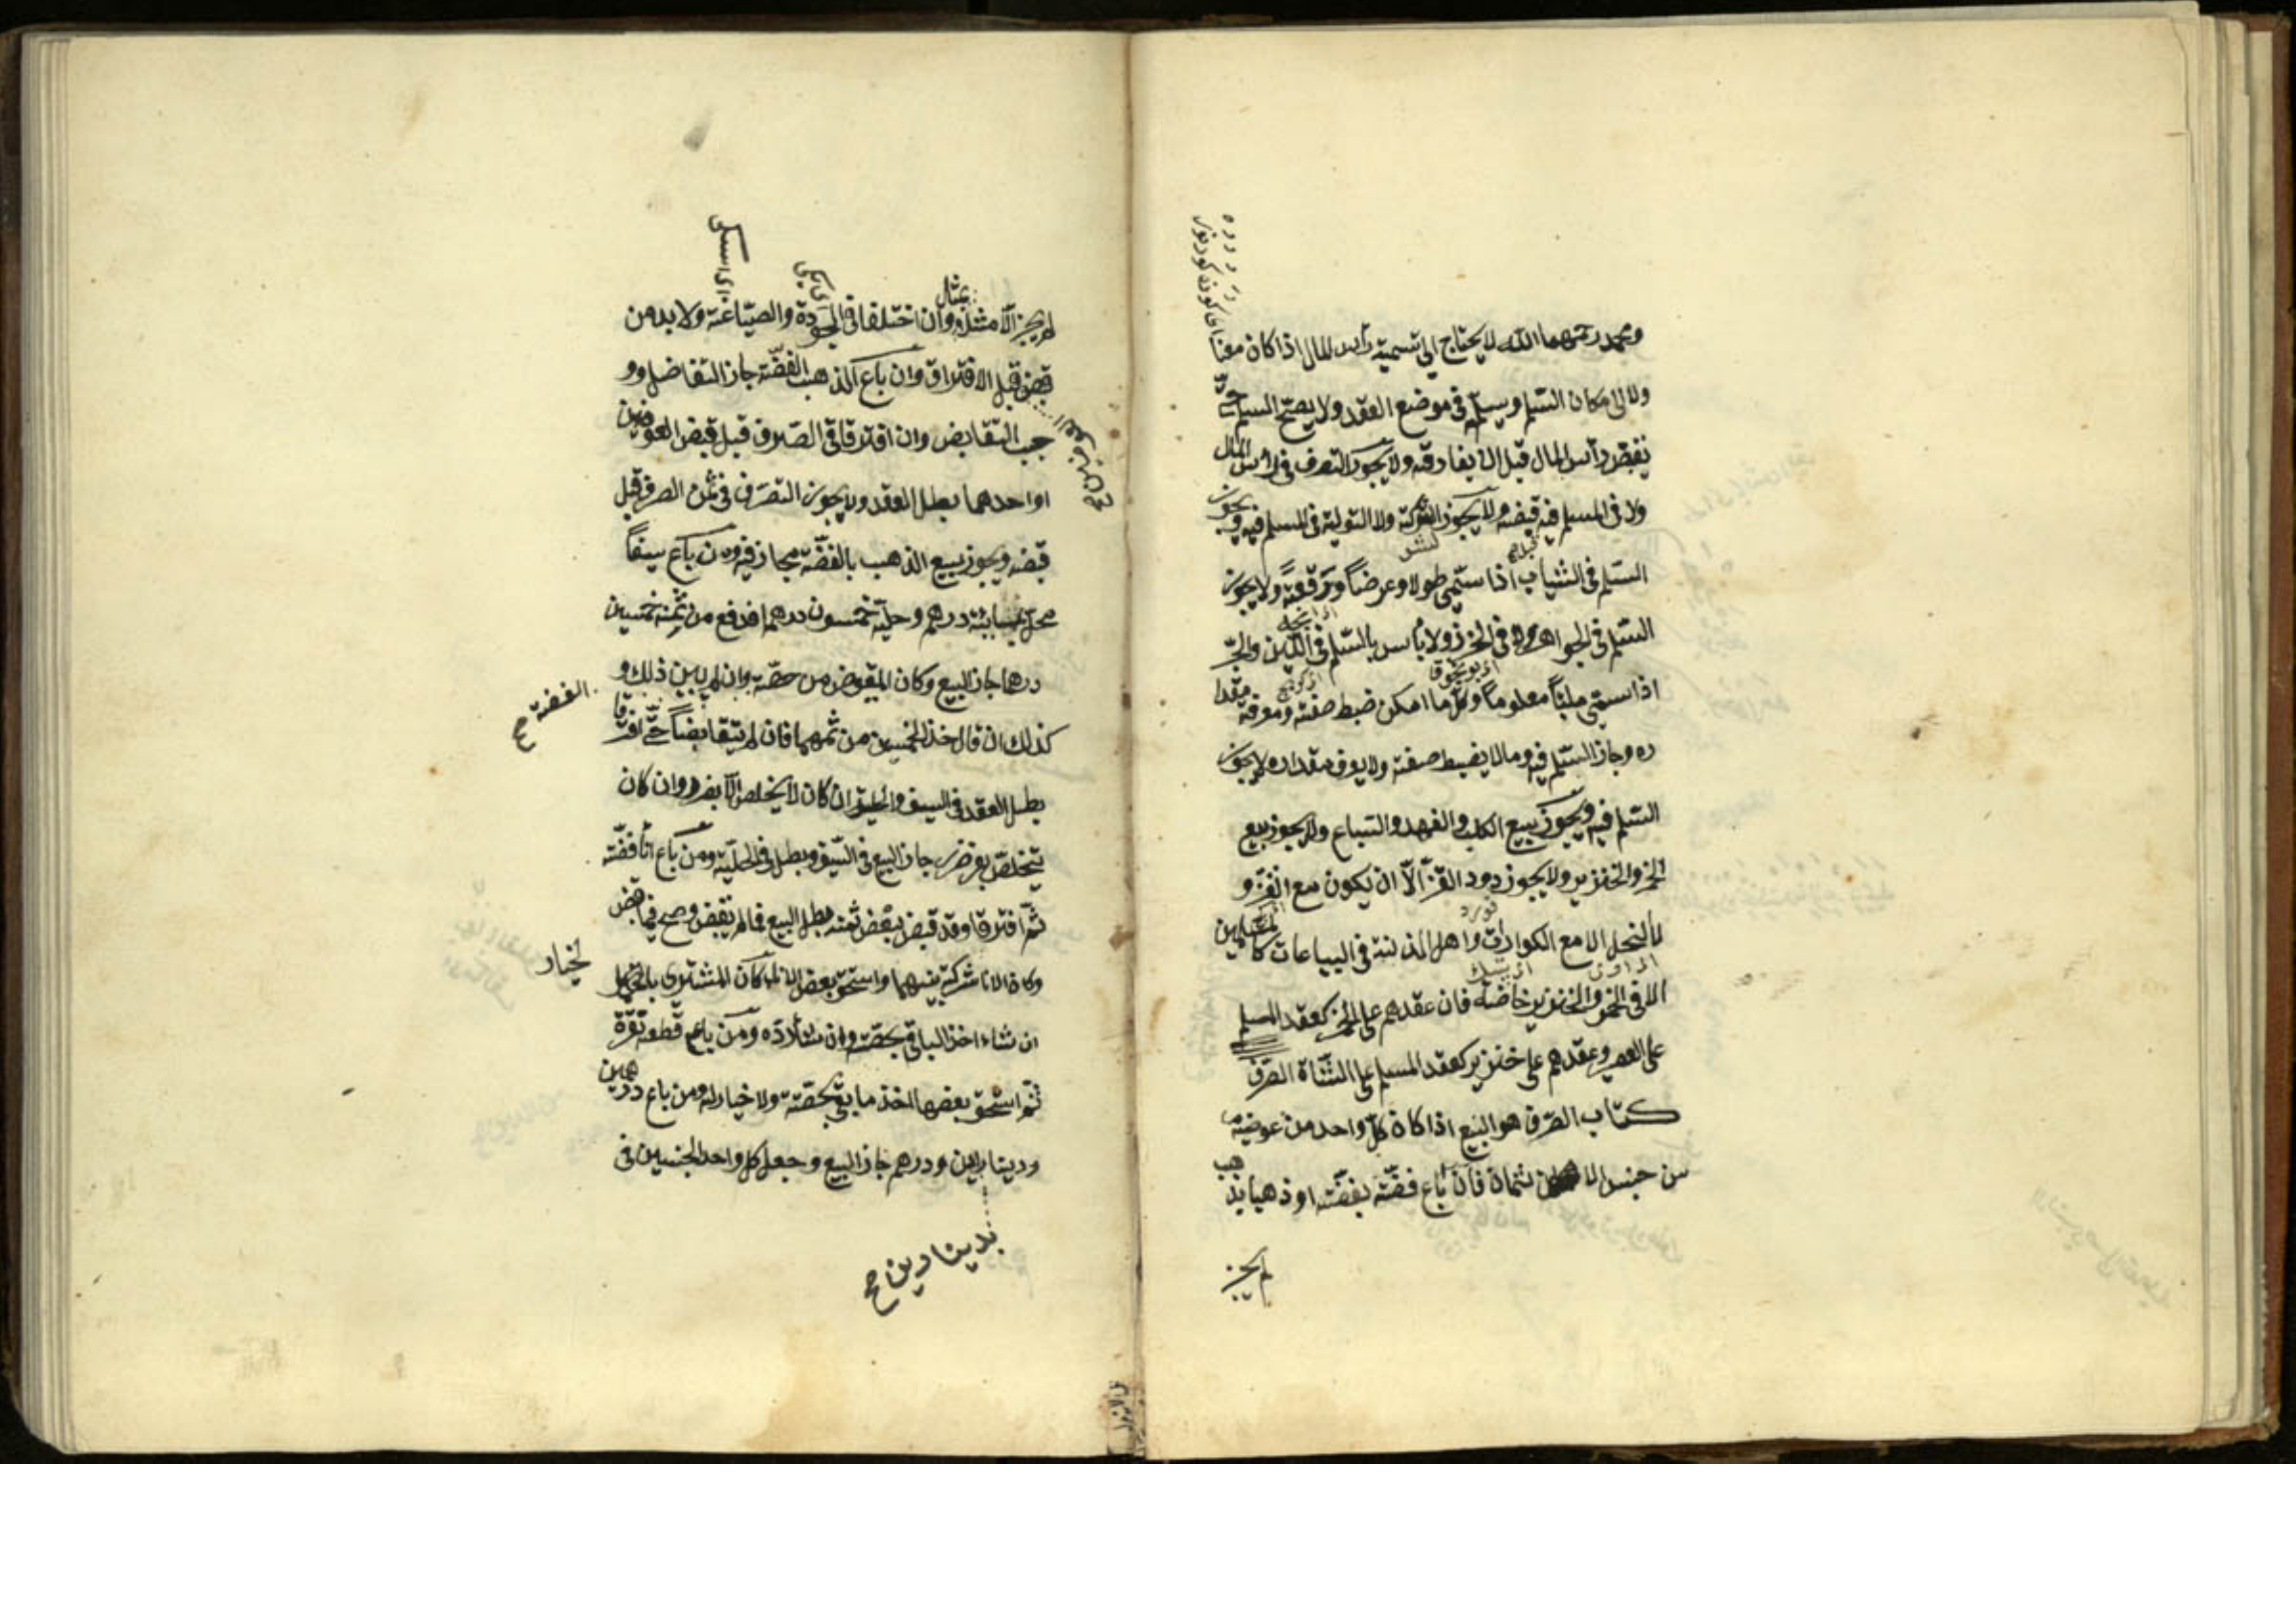 ومحمد رحمهما الله لا يحتاج الى تسمية رأس المال اذا كان معينا
ولا الى مكان التسليم ويسلمه فى موضع العقد ولا يصح السلم حتى
يقبض رأس المال قبل ان يفارقه ولا يجوز التصرف فى رأس المال
ولا فى المسلم فيه قبضه ولا يجوز الشركة ولا التولية فى المسلم فيه ويجوز
السلم فى الثياب اذا سمى طولا وعرضاً ورقعةً ولا يجوز
السلم فى الجواهر ولا فى الخرز ولا بأس بالسلم فى اللبن والآجر
اذا سمى ملبناً معلوماً وكل ما امكن ضبط صفته ومعرفة مقدا
ره وجاز السلم فيه وما لا يضبط صفته ولا يعرف مقداره لا يجوز
السلم فيه ويجوز بيع الكلب والفهد والسباع ولا يجوز بيع
الخمر والخنزير ولا يجوز دود القز الّا ان يكون مع القز و
لا النحل الا مع الكوارات واهل الذمة فى البياعات كالمسلمين
الا فى الخمر والخنزير خاصة فان عقدهم على الخمر كعقد المسلم
على العصير وعقدهم على خنزير كعقد المسلم على الشاة الصرف
كتاب الصرف هو البيع اذا كان كل واحد من عوضيه
من جنس الاثمان فان باع فضة بفضة او ذهبا بذهب
لم يجز
لم يجز الّا مثل وان اختلفا فى الجودة والصياغة ولا بد من
بمثل
قبض قبل الافتراق وان باع الذهب الفضة جاز التفاضل وو
جب التقابض وان افترقا فى الصرف قبل قبض العوضين
او احدهما بطل العقد ولا يجوز التصرف فى ثمن الصرف قبل
قبضه ويجوز بيع الذهب بالفضة مجازفة ومن باع سيفاً
محلى بمائة درهم وحليته خمسون درهما فدفع من ثمنه خمسين
درهما جاز البيع وكان المقبوض من حصة وان لم يبين ذلك و
الفضة صح
كذلك ان قال خذ الخمسين من ثمنهما فان لم يتقابضا حتى افترقا
بطل العقد فى السيف والحلية ان كان لا يخلص الّا بضرر وان كان
يتخلص بغير ضرر جاز البيع فى السيف وبطل فى الحلية ومن باع اناً فضة
ثم افترقا وقد قبض بعض ثمنه بطل البيع فيما لم يقبض وصح فيما قبض
وكان الاناء شركة بينهما واستحق بعض الاناء كان المشترى بالخيار
لخيار
ان شاء اخذ الباقى بحصته وان شاء رده ومن باع قطعة نقرة
ثم استحق بعضها اخذ ما بقى بحصته ولا خيار له ومن باع درهمين
ودينارا بدينارين ودرهم جاز البيع وجعل كل واحد الجنسين فى
بدينارين صح